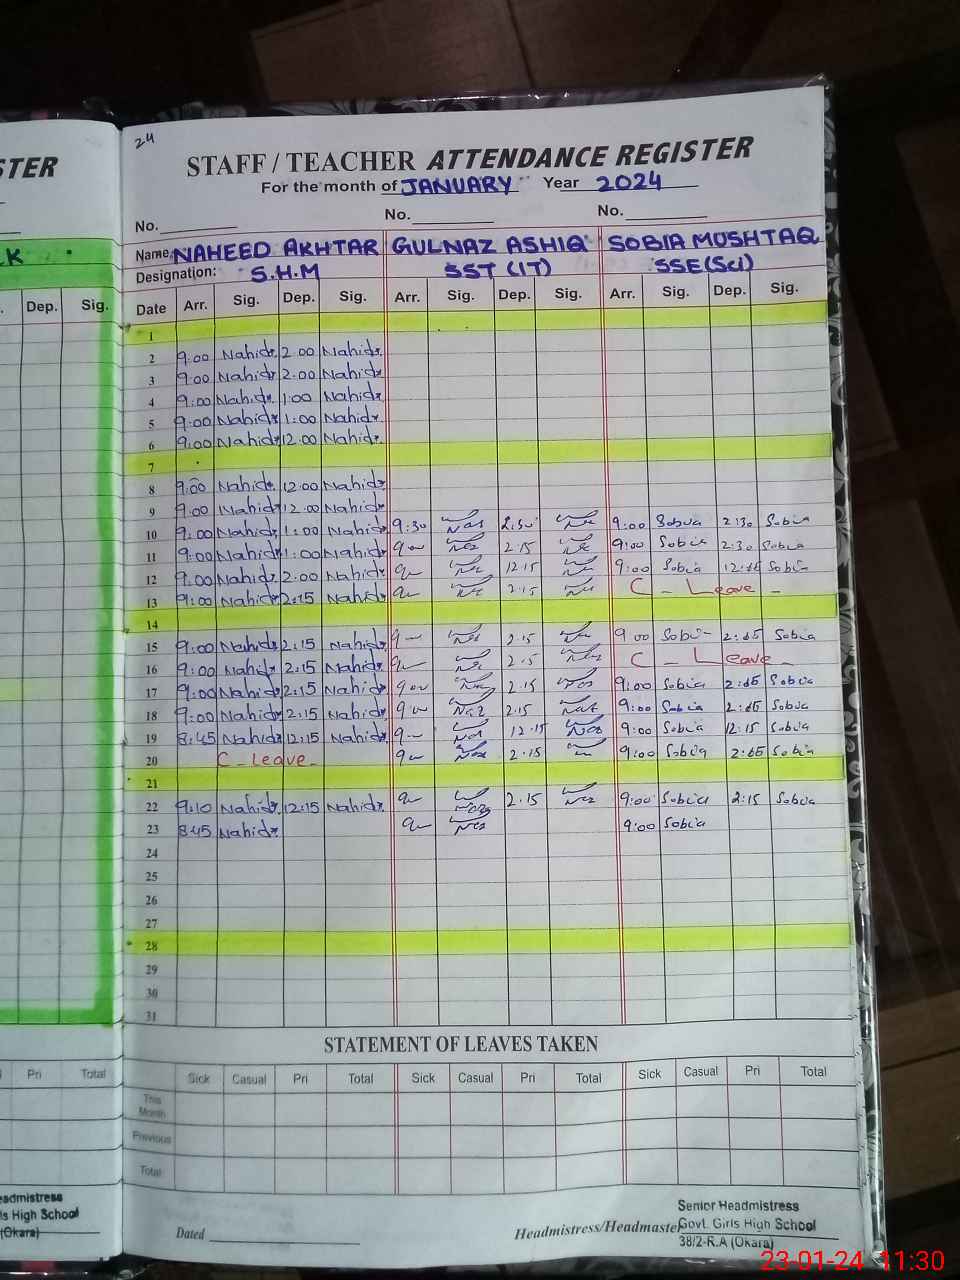 24
STER
STAFF / TEACHER ATTENDANCE REGISTER
For the month of JANUARY Year 2024
No. No. No.
K
Name: NAHEED AKHTAR GULNAZ ASHIQ SOBIA MUSHTAQ
Designation: S.H.M SST (IT) SSE(Sci)
Dep. Sig. Date Arr. Sig. Dep. Sig. Arr. Sig. Dep. Sig. Arr. Sig. Dep. Sig.
1
2 9:00 Nahid 2.00 Nahid
3 9:00 Nahid 2.00 Nahid
4 9:00 Nahid 1:00 Nahid
5 9:00 Nahid 1:00 Nahid
6 9:00 Nahid 12.00 Nahid
7
8 9:00 Nahid 12:00 Nahid
9 9:00 Nahid 12.00 Nahid
10 9:00 Nahid 1:00 Nahid 9:30 2:30 9:00 Sobia 2:30 Sobia
11 9:00 Nahid 1:00 Nahid 2.15 9:00 Sobia 2:30 Sobia
12 9:00 Nahid 2:00 Nahid 12.15 9:00 Sobia Sobia
13 9:00 Nahid 2:15 Nahid 2.15 C - Leave -
14
15 9:00 Nahid 2:15 Nahid 2.15 9:00 Sobia Sobia
16 9:00 Nahid 2:15 Nahid 2.15 C - Leave -
17 9:00 Nahid 2:15 Nahid 2.15 9:00 Sobia Sobia
18 9:00 Nahid 2:15 Nahid 2.15 9:00 Sobia Sobia
19 8:45 Nahid 12:15 Nahid 12.15 9:00 Sobia 12:15 Sobia
20 C - Leave - 2.15 9:00 Sobia Sobia
21
22 9:10 Nahid 12:15 Nahid 2.15 9:00 Sobia 2:15 Sobia
23 8:45 Nahid 9:00 Sobia
24
25
26
27
28
29
30
31
STATEMENT OF LEAVES TAKEN
Pri Total Sick Casual Pri Total Sick Casual Pri Total Sick Casual Pri Total
This Month
Previous
Total
eadmistress
ls High School
(Okara)
Dated Headmistress/Headmaster
Senior Headmistress
Govt. Girls High School
38/2-R.A (Okara)
23-01-24 11:30